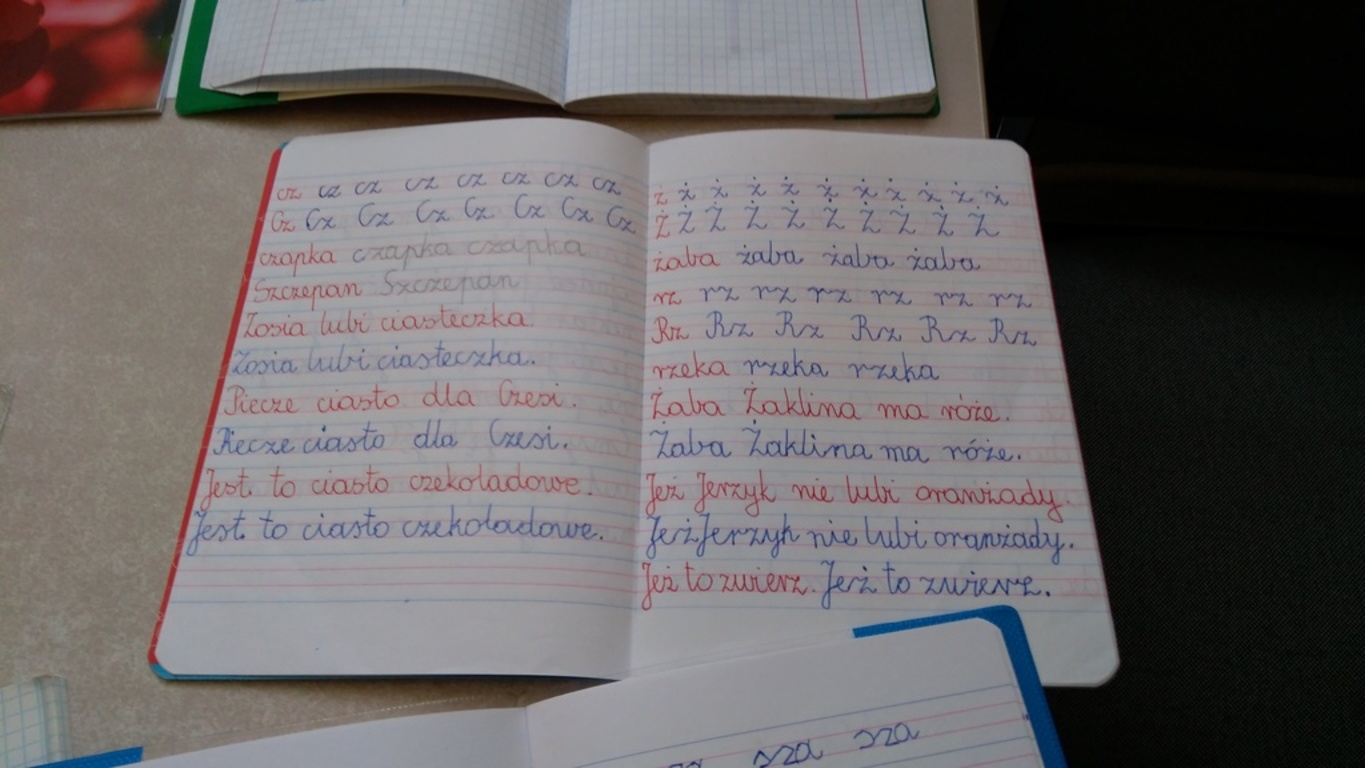 cz cz cz cz cz cz cz cz
Cz Cz Cz Cz Cz Cz Cz Cz
czapka czapka czapka
Szczepan Szczepan
Zosia lubi ciasteczka.
Zosia lubi ciasteczka.
Piecze ciasto dla Czesi.
Piecze ciasto dla Czesi.
Jest to ciasto czekoladowe.
Jest to ciasto czekoladowe.
ż ż ż ż ż ż ż ż ż ż ż
Ż Ż Ż Ż Ż Ż Ż Ż Ż Ż
żaba żaba żaba żaba
rz rz rz rz rz rz rz
Rz Rz Rz Rz Rz Rz
rzeka rzeka rzeka
Żaba Żaklina ma róże.
Żaba Żaklina ma róże.
Jeż Jerzyk nie lubi oranżady.
Jeż Jerzyk nie lubi oranżady.
Jeż to zwierz. Jeż to zwierz.
sza sza